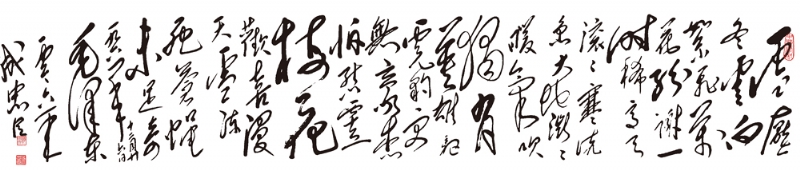 雪压
冬雲白
絮飛萬
花紛謝一
时稀高天
滚滚寒流
急大地微微
暖氣吹
獨有
英雄驱
虎豹更
無豪杰
怕熊罴
梅花
歡喜漫
天雪冻
死蒼蝇
未足奇
毛澤東
成忠臣